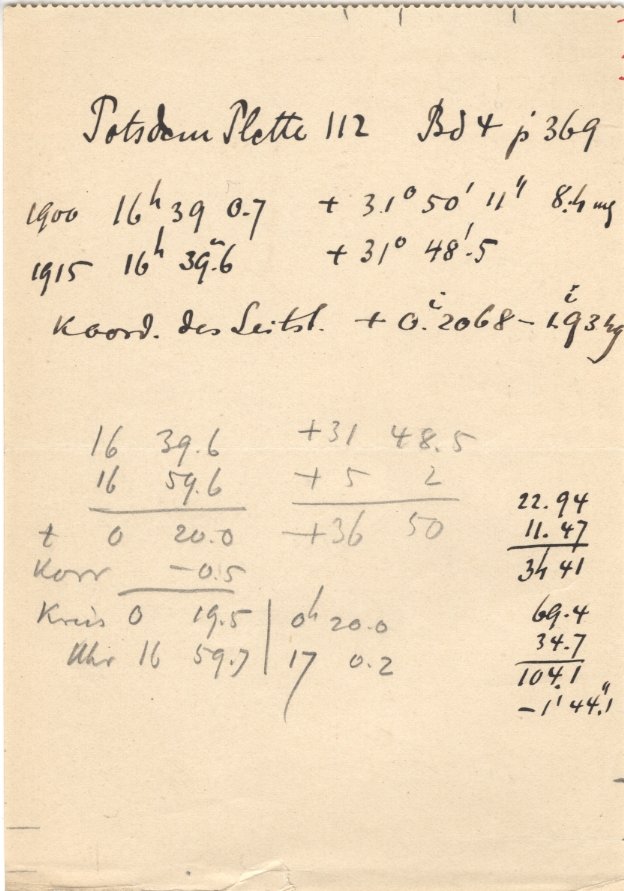 Potsdam Platte 112 Bd 4 p 369
1900 16h 39 0.7 + 31° 50' 11" 8.4 mg
1915 16h 39m.6 + 31° 48'.5
Koord. des Leitst. + 0.2068 - 1.93
16 39.6 +31 48.5
16 59.6 + 5 2
t 0 20.0 +36 50
Korr -0.5
Kreis 0 19.5 | 0h 20.0
Uhr 16 59.7 | 17 0.2
22.94
11.47
34 41
69.4
34.7
104.1
-1' 44".1